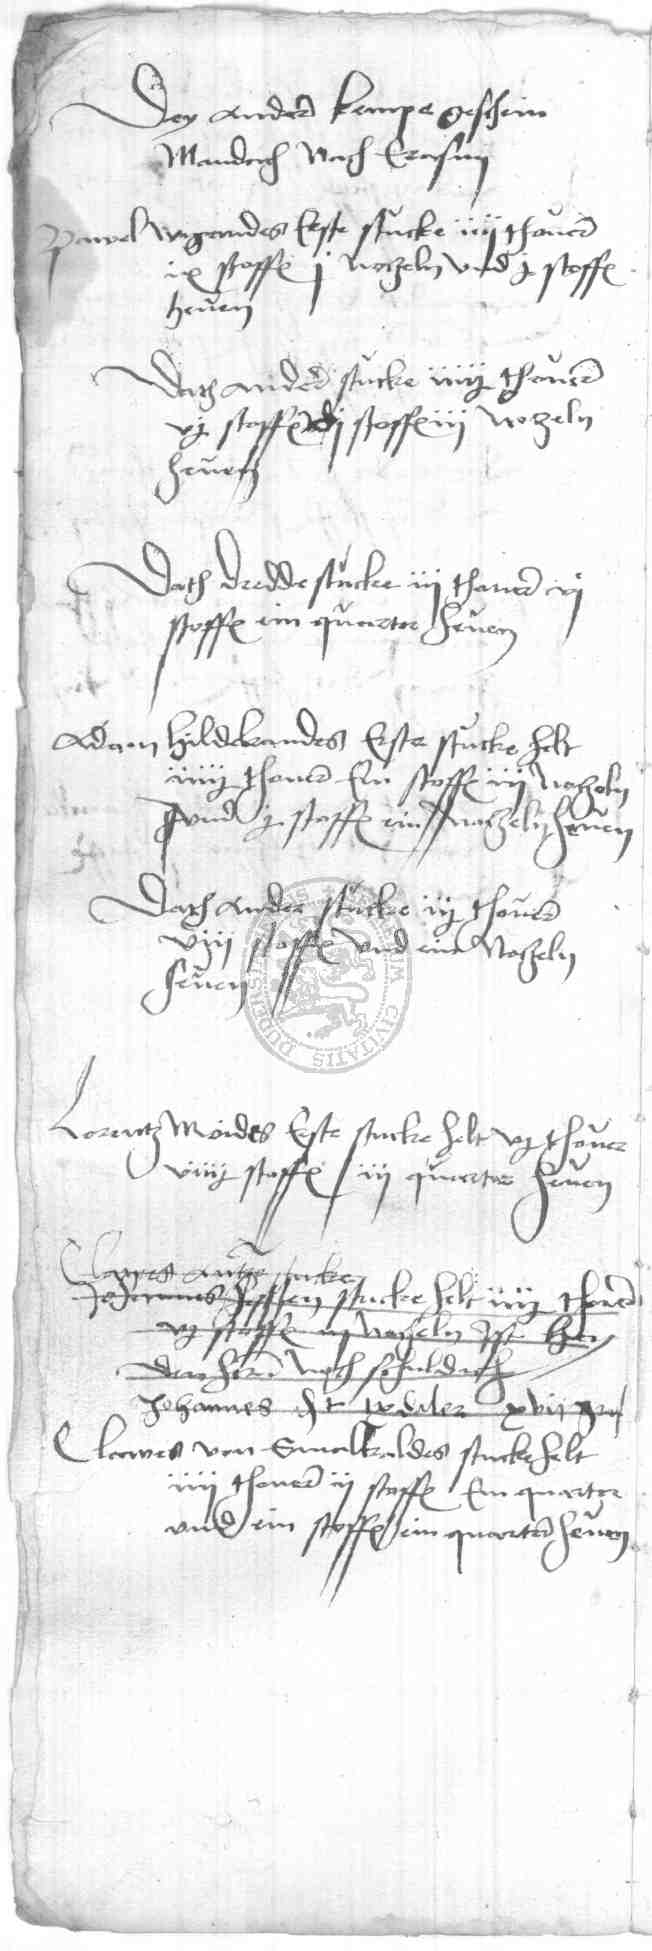 Dey ander kempe geschein
Mandach Nach Erasmy
Pawel wygandes Erste stucke iiij thover
ix stoffe j Noßeln vnd j stoffe
heuen
Dath ander stucke iiiij thover
vj stoffe j stoffe iij Noßeln
heuen
Dath dredde stucke iij thover xj
stoffe ein quarter heuen
Adam Hildebrandes Erste stucke helt
iiiij thover Ein stoffe iij Noßeln
vnd j stoffe ein Noßeln heuen
Dath ander stucke iij thover
viij stoffe vnd ein Noßeln
heuen
Lorentz Moides Erste stucke helt vj thover
viiij stoffe iij quarter heuen
Clawes stucke
Johannes stucke helt iiiij thover
vj stoffe iij Noßeln Ist
den hern noch schuldich
Johannes xvij
Clawes von Smalkaldes stucke helt
iiij thover ij stoffe Ein quarter
vnd ein stoffe ein quarter heuen
CIVITATIS